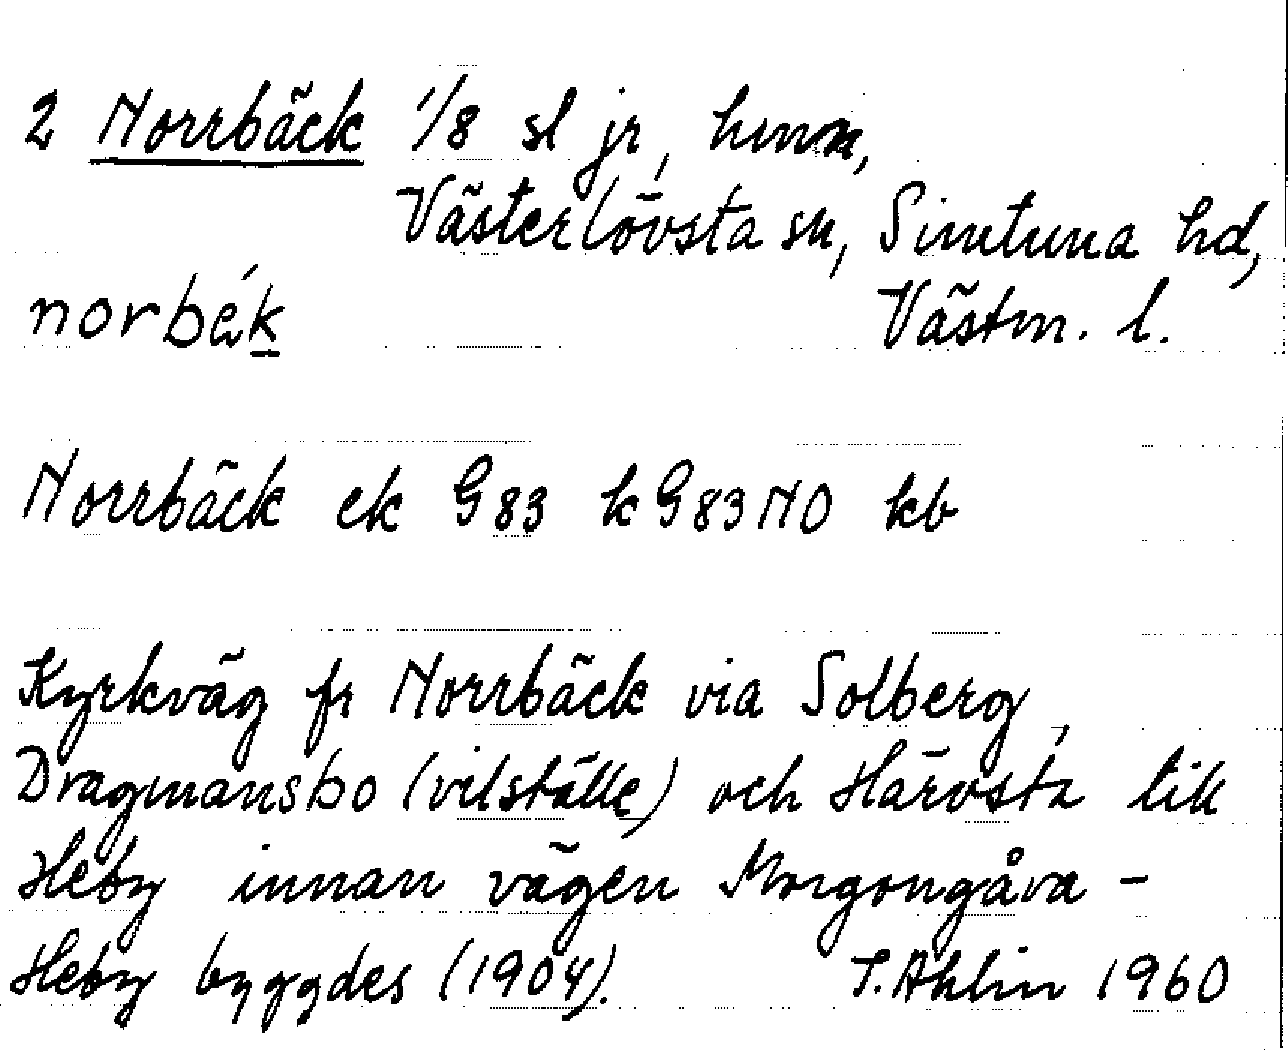 2 Norrbäck 1/8 sl jr, hmn,
Västerlövsta sn, Simtuna hd,
norbék Västm. l.
Norrbäck ek G83 k G83NO kb
Kyrkväg fr Norrbäck via Solberg,
Dragmansbo (vilställe) och Härvsta till
Heby innan vägen Morgongåva -
Heby byggdes (1904). T. Ahlin 1960